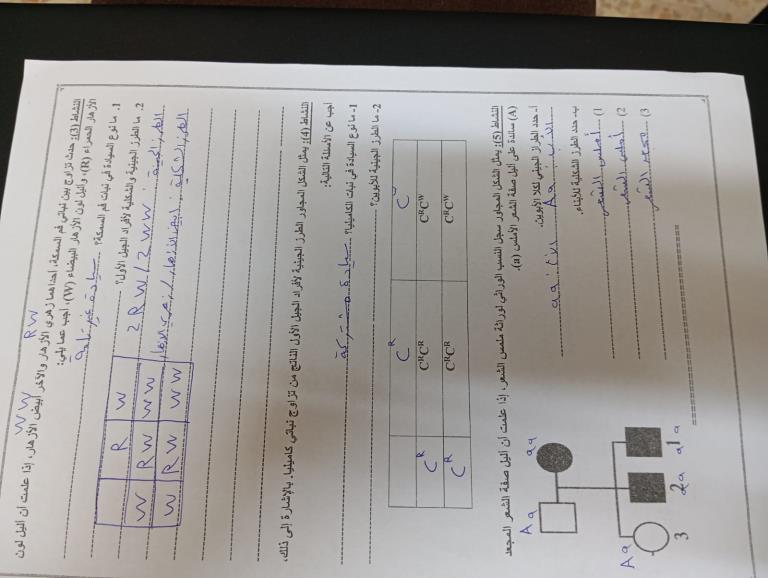 النشاط (3): حدث تزاوج بين نباتي فم السمكة، احداهما زهري الأزهار والآخر أبيض الأزهار، إذا علمت ان اليل لون
RW WW
الأزهار الحمراء (R)، واليل لون الأزهار البيضاء (W)، اجب عما يلي:
1. ما نوع السيادة في نبات فم السمكة؟ سيادة غير تامة
2. ما الطرز الجينية والشكلية لأفراد الجيل الأول؟
2RW / 2WW : الطرز الجينية
الطرز الشكلية : ابيض الازهار / زهري الازهار
R W
W RW WW
W RW WW
النشاط (4): يمثل الشكل المجاور الطرز الجينية لأفراد الجيل الأول الناتج من تزاوج نباتي كاميليا. بالإشارة إلى ذلك،
أجب عن الأسئلة التالية:
1- ما نوع السيادة في نبات الكاميليا؟ سيادة مشتركة
2- ما الطرز الجينية للأبوين؟
Cᴿ C
Cᴿ CᴿCᴿ CᴿCᵂ
Cᴿ CᴿCᴿ CᴿCᵂ
النشاط (5): يمثل الشكل المجاور سجل النسب الوراثي لوراثة ملمس الشعر، إذا علمت ان أليل صفة الشعر المجعد
(A) سائدة على أليل صفة الشعر الأملس (a).
أ- حدد الطراز الجيني لكلا الأبوين.
الأب : Aa الأم : aa
ب- حدد الطرز الشكلية للأبناء.
1) أملس الشعر
2) أملس الشعر
3) مجعد الشعر
Aa aa
Aa aa aa
3 2 1